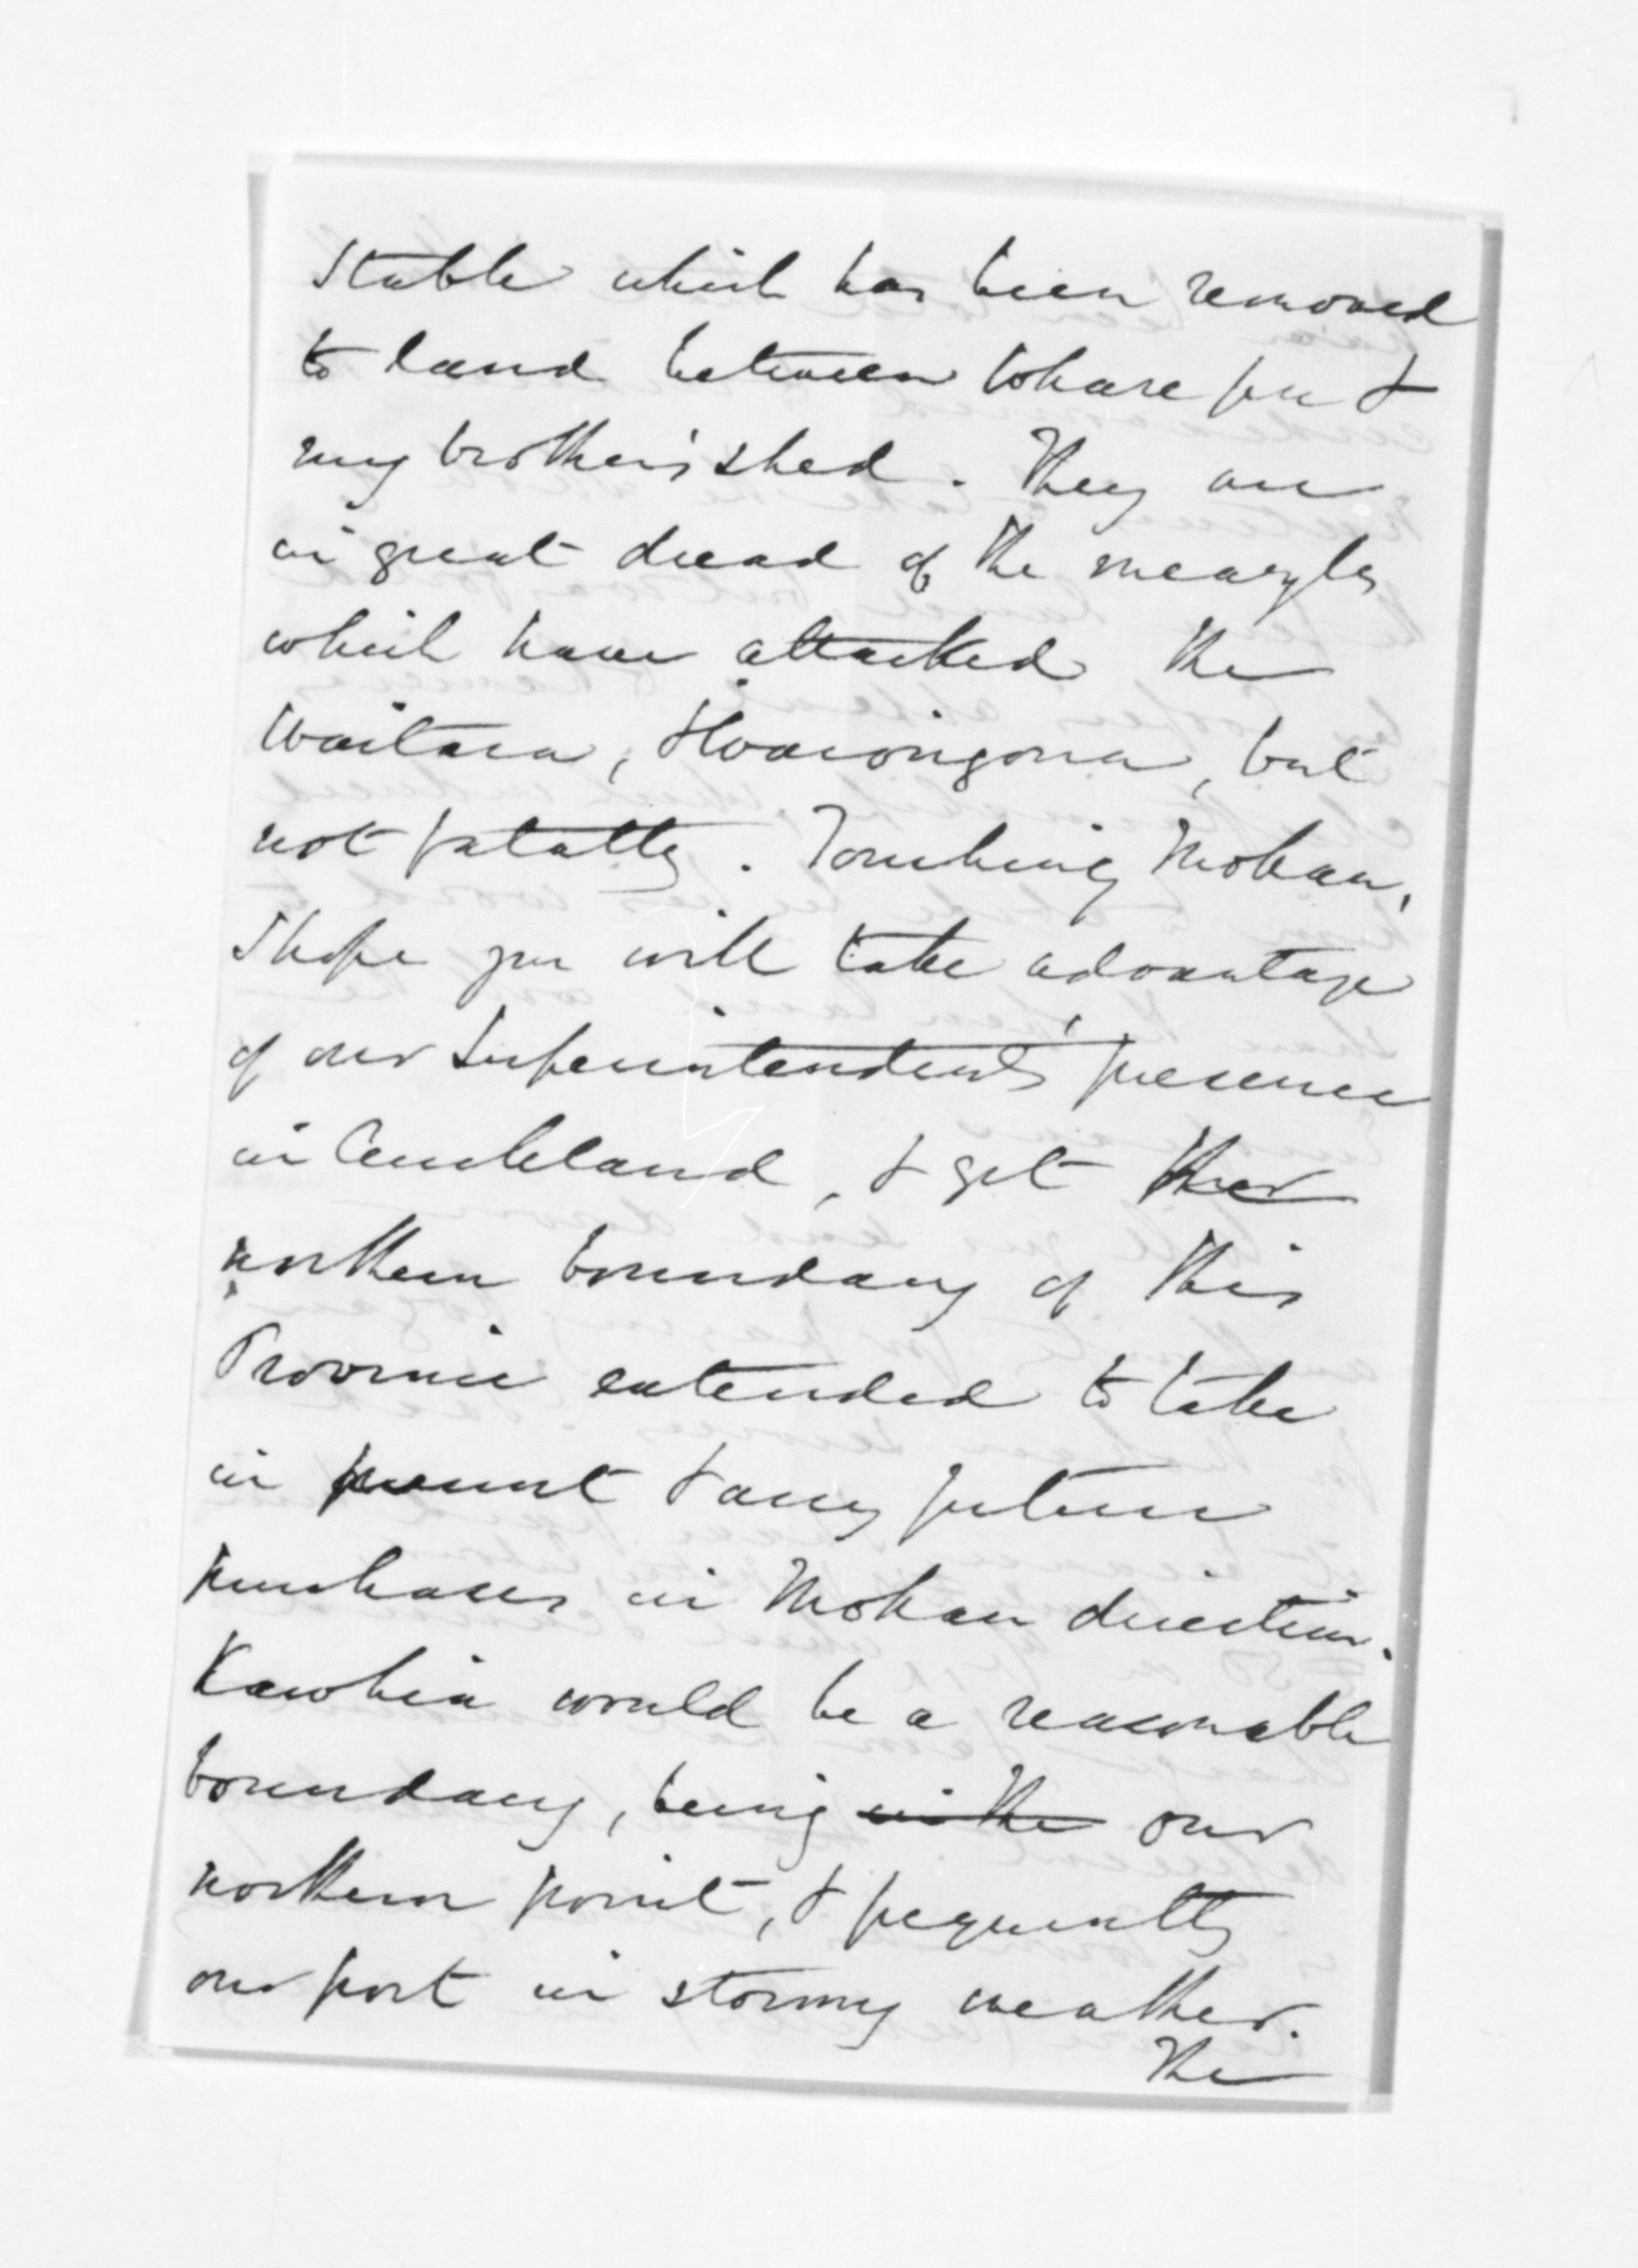 Stable which has been removed
to land between Whare pu &
my brother's shed. They are
in great dread of the meazles
which have attacked the
Waitara, Huirangi, but
not fatally. Touching Mokau,
I hope you will take advantage
of our Superintendent's presence
in Auckland, & get the
northern boundary of this
Province extended to take
in present & any future
purchases in Mokau direction.
Kawhia would be a reasonable
boundary, being in the our
northern point, & frequently
our port in stormy weather.
The